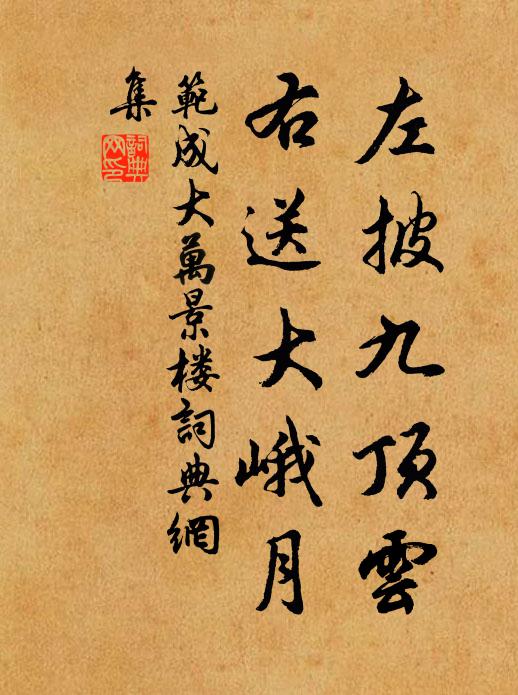 左披九顶雲
右送大峨月
範成大萬景楼詞典網
集
詞典
网印